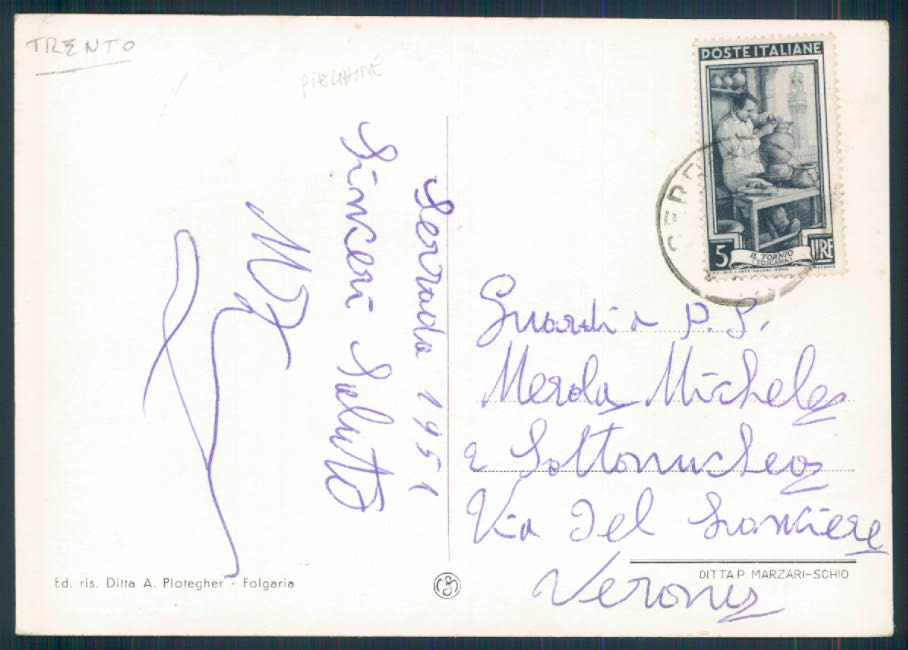 TRENTO
Serrada 1951
Sinceri Saluti
POSTE ITALIANE
5 LIRE
IL TORNIO
(TOSCANA)
Guardia P. S.
Merola Michele
2 Sottonucleo
Via Del
Verona
DITTA P. MARZARI-SCHIO
Ed. ris. Ditta A. Plotegher - Folgaria